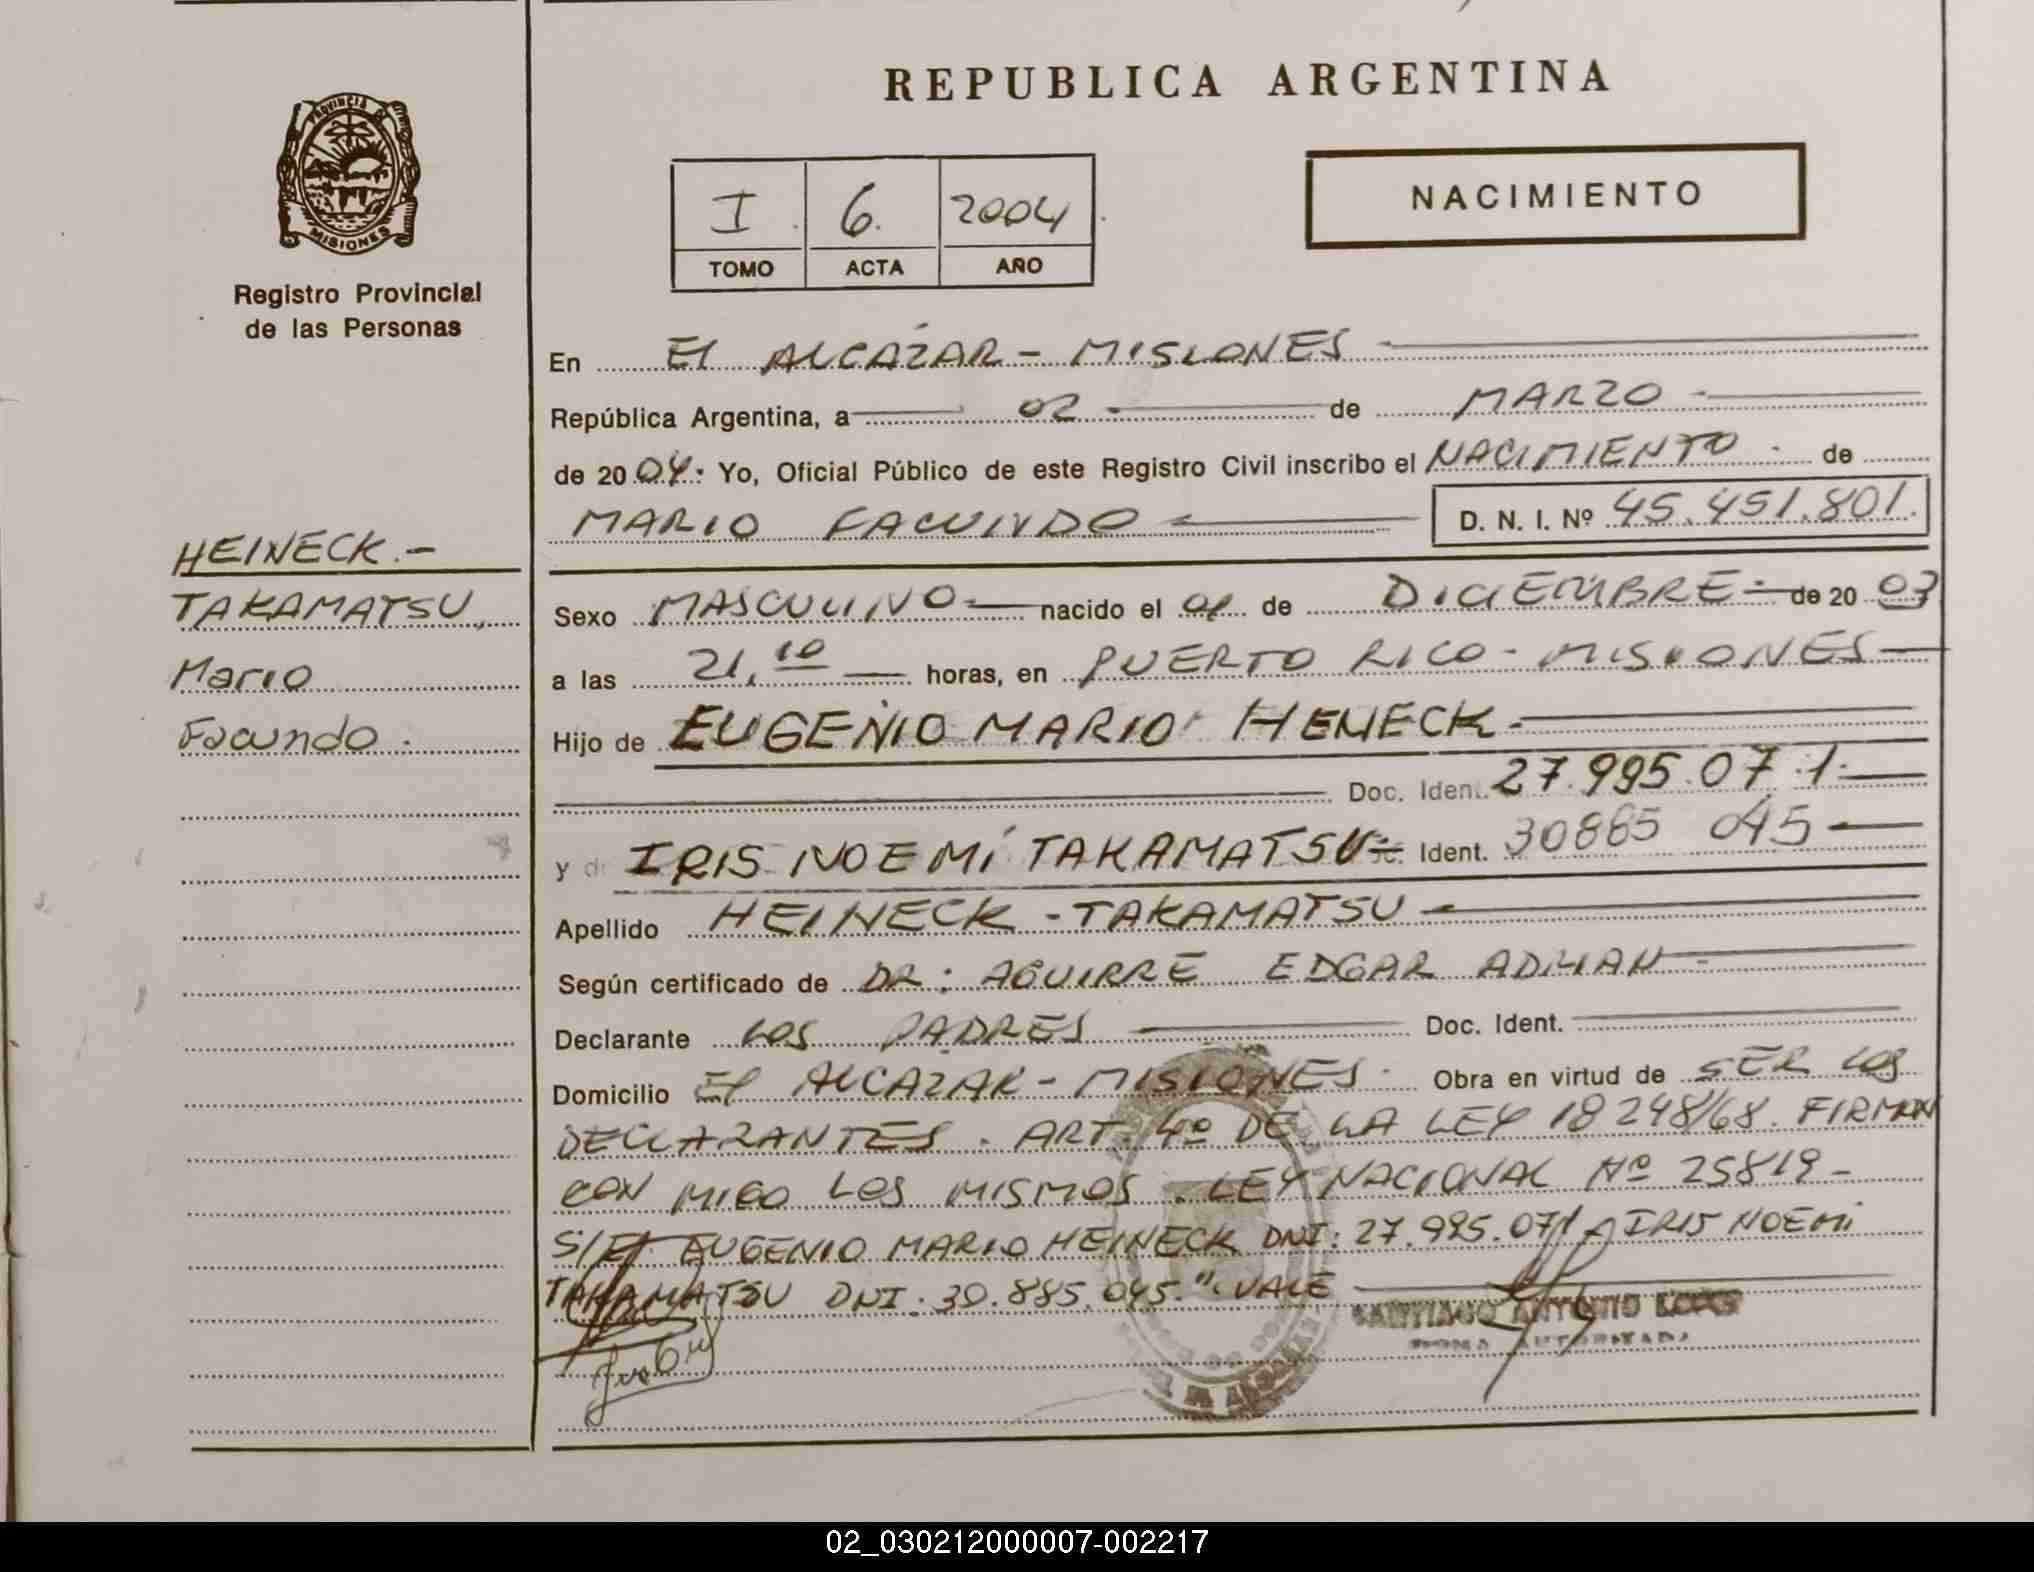 REPUBLICA ARGENTINA
PROVINCIA DE
MISIONES
Registro Provincial
de las Personas
I 6. 2004
TOMO ACTA AÑO
NACIMIENTO
En El ALCAZAR - MISIONES
República Argentina, a 02 de MARZO
de 20 04. Yo, Oficial Público de este Registro Civil inscribo el NACIMIENTO de
MARIO FACUNDO D. N. I. Nº 45.451.801.
HEINECK.-
TAKAMATSU,
Mario
Facundo.
Sexo MASCULINO nacido el 01 de DICIEMBRE de 20 03
a las 21,10 horas, en PUERTO RICO - MISIONES
Hijo de EUGENIO MARIO HENECK
Doc. Ident. 27.995.071
y d IRIS NOEMÍ TAKAMATSU Ident. 30885 045
Apellido HEINECK - TAKAMATSU
Según certificado de DR: AGUIRRE EDGAR ADRIAN
Declarante LOS PADRES Doc. Ident.
Domicilio El ALCAZAR - MISIONES Obra en virtud de SER LOS
DECLARANTES. ART. 4º DE LA LEY 18248/68. FIRMAN
CON MIGO LOS MISMOS. LEY NACIONAL Nº 25819-
S/R: EUGENIO MARIO HEINECK DNI: 27.995.071 IRIS NOEMI
TAKAMATSU DNI: 30.885.045." VALE
SANTIAGO ANTONIO
02_030212000007-002217